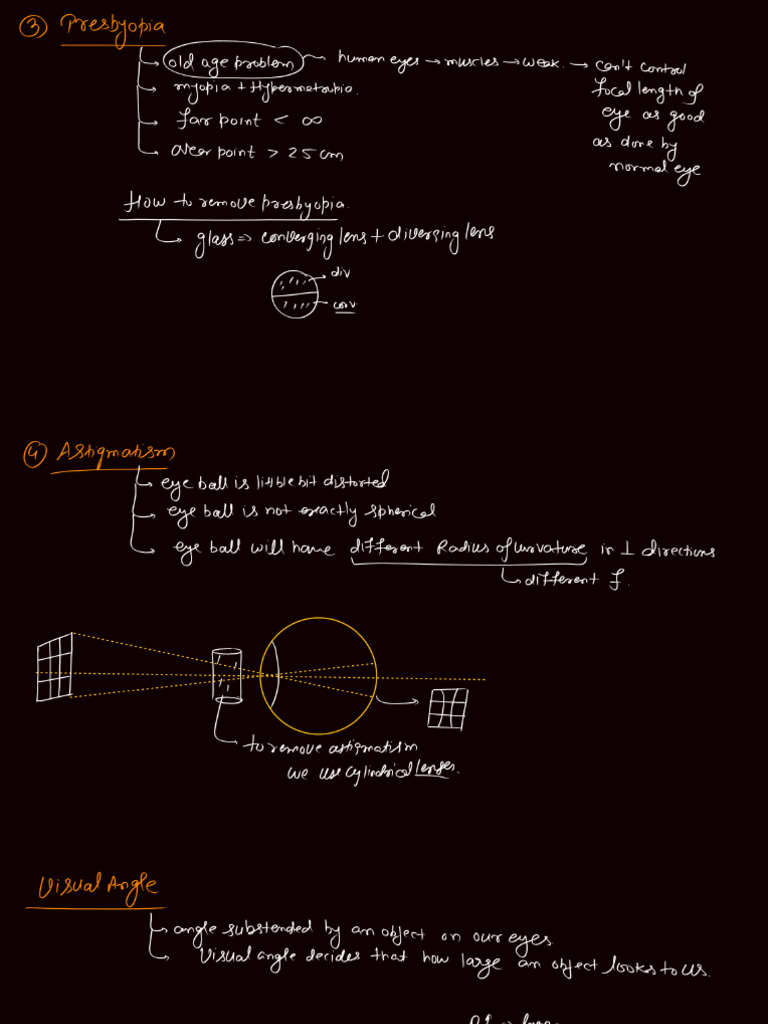 ③ Presbyopia
old age problem
human eyes → muscles → weak. → can't control
focal length of
eye as good
as done by
normal eye
myopia + Hypermetropia.
far point < ∞
Near point > 25 cm
How to remove presbyopia.
glass ⇒ converging lens + diverging lens
div
conv
④ Astigmatism
eye ball is little bit distorted
eye ball is not exactly spherical
eye ball will have different Radius of curvature in ⊥ directions
different f.
to remove astigmatism
we use cylindrical lenses.
Visual Angle
angle substended by an object on our eyes
Visual angle decides that how large an object looks to us.